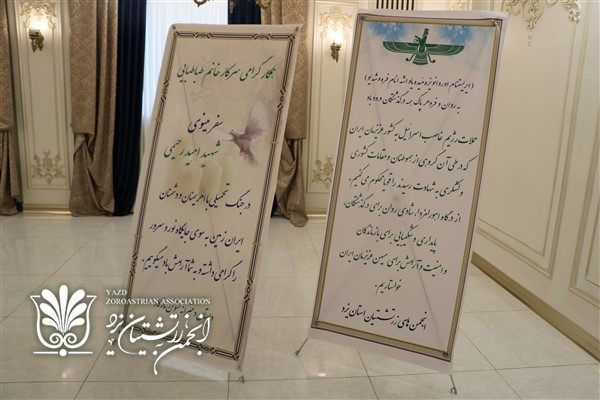 همکار گرامی سرکار خانم طباطبایی
سفر مینوی
شهید امید رحیمی
در جنگ تحمیلی با اهریمنان و دشمنان
ایران زمین به سوی جایگاه نور و سرور
را گرامی داشته و به شما آرامش باد میگوییم.
به روان و فروهر پاک همه درگذشتگان درود باد
حملات رژیم غاصب اسرائیل به کشور عزیزمان ایران
که در طی آن گروهی از هموطنان و مقامات کشوری
و لشکری به شهادت رسیدند را قویا محکوم می کنیم.
از درگاه اهورامزدا، شادی روان برای درگذشتگان،
پایداری و شکیبایی برای بازماندگان
و امنیت و آرامش برای میهن عزیزمان ایران
خواستاریم.
انجمن های زرتشتیان استان یزد
YAZD
ZOROASTRIAN ASSOCIATION
انجمن زرتشتیان یزد